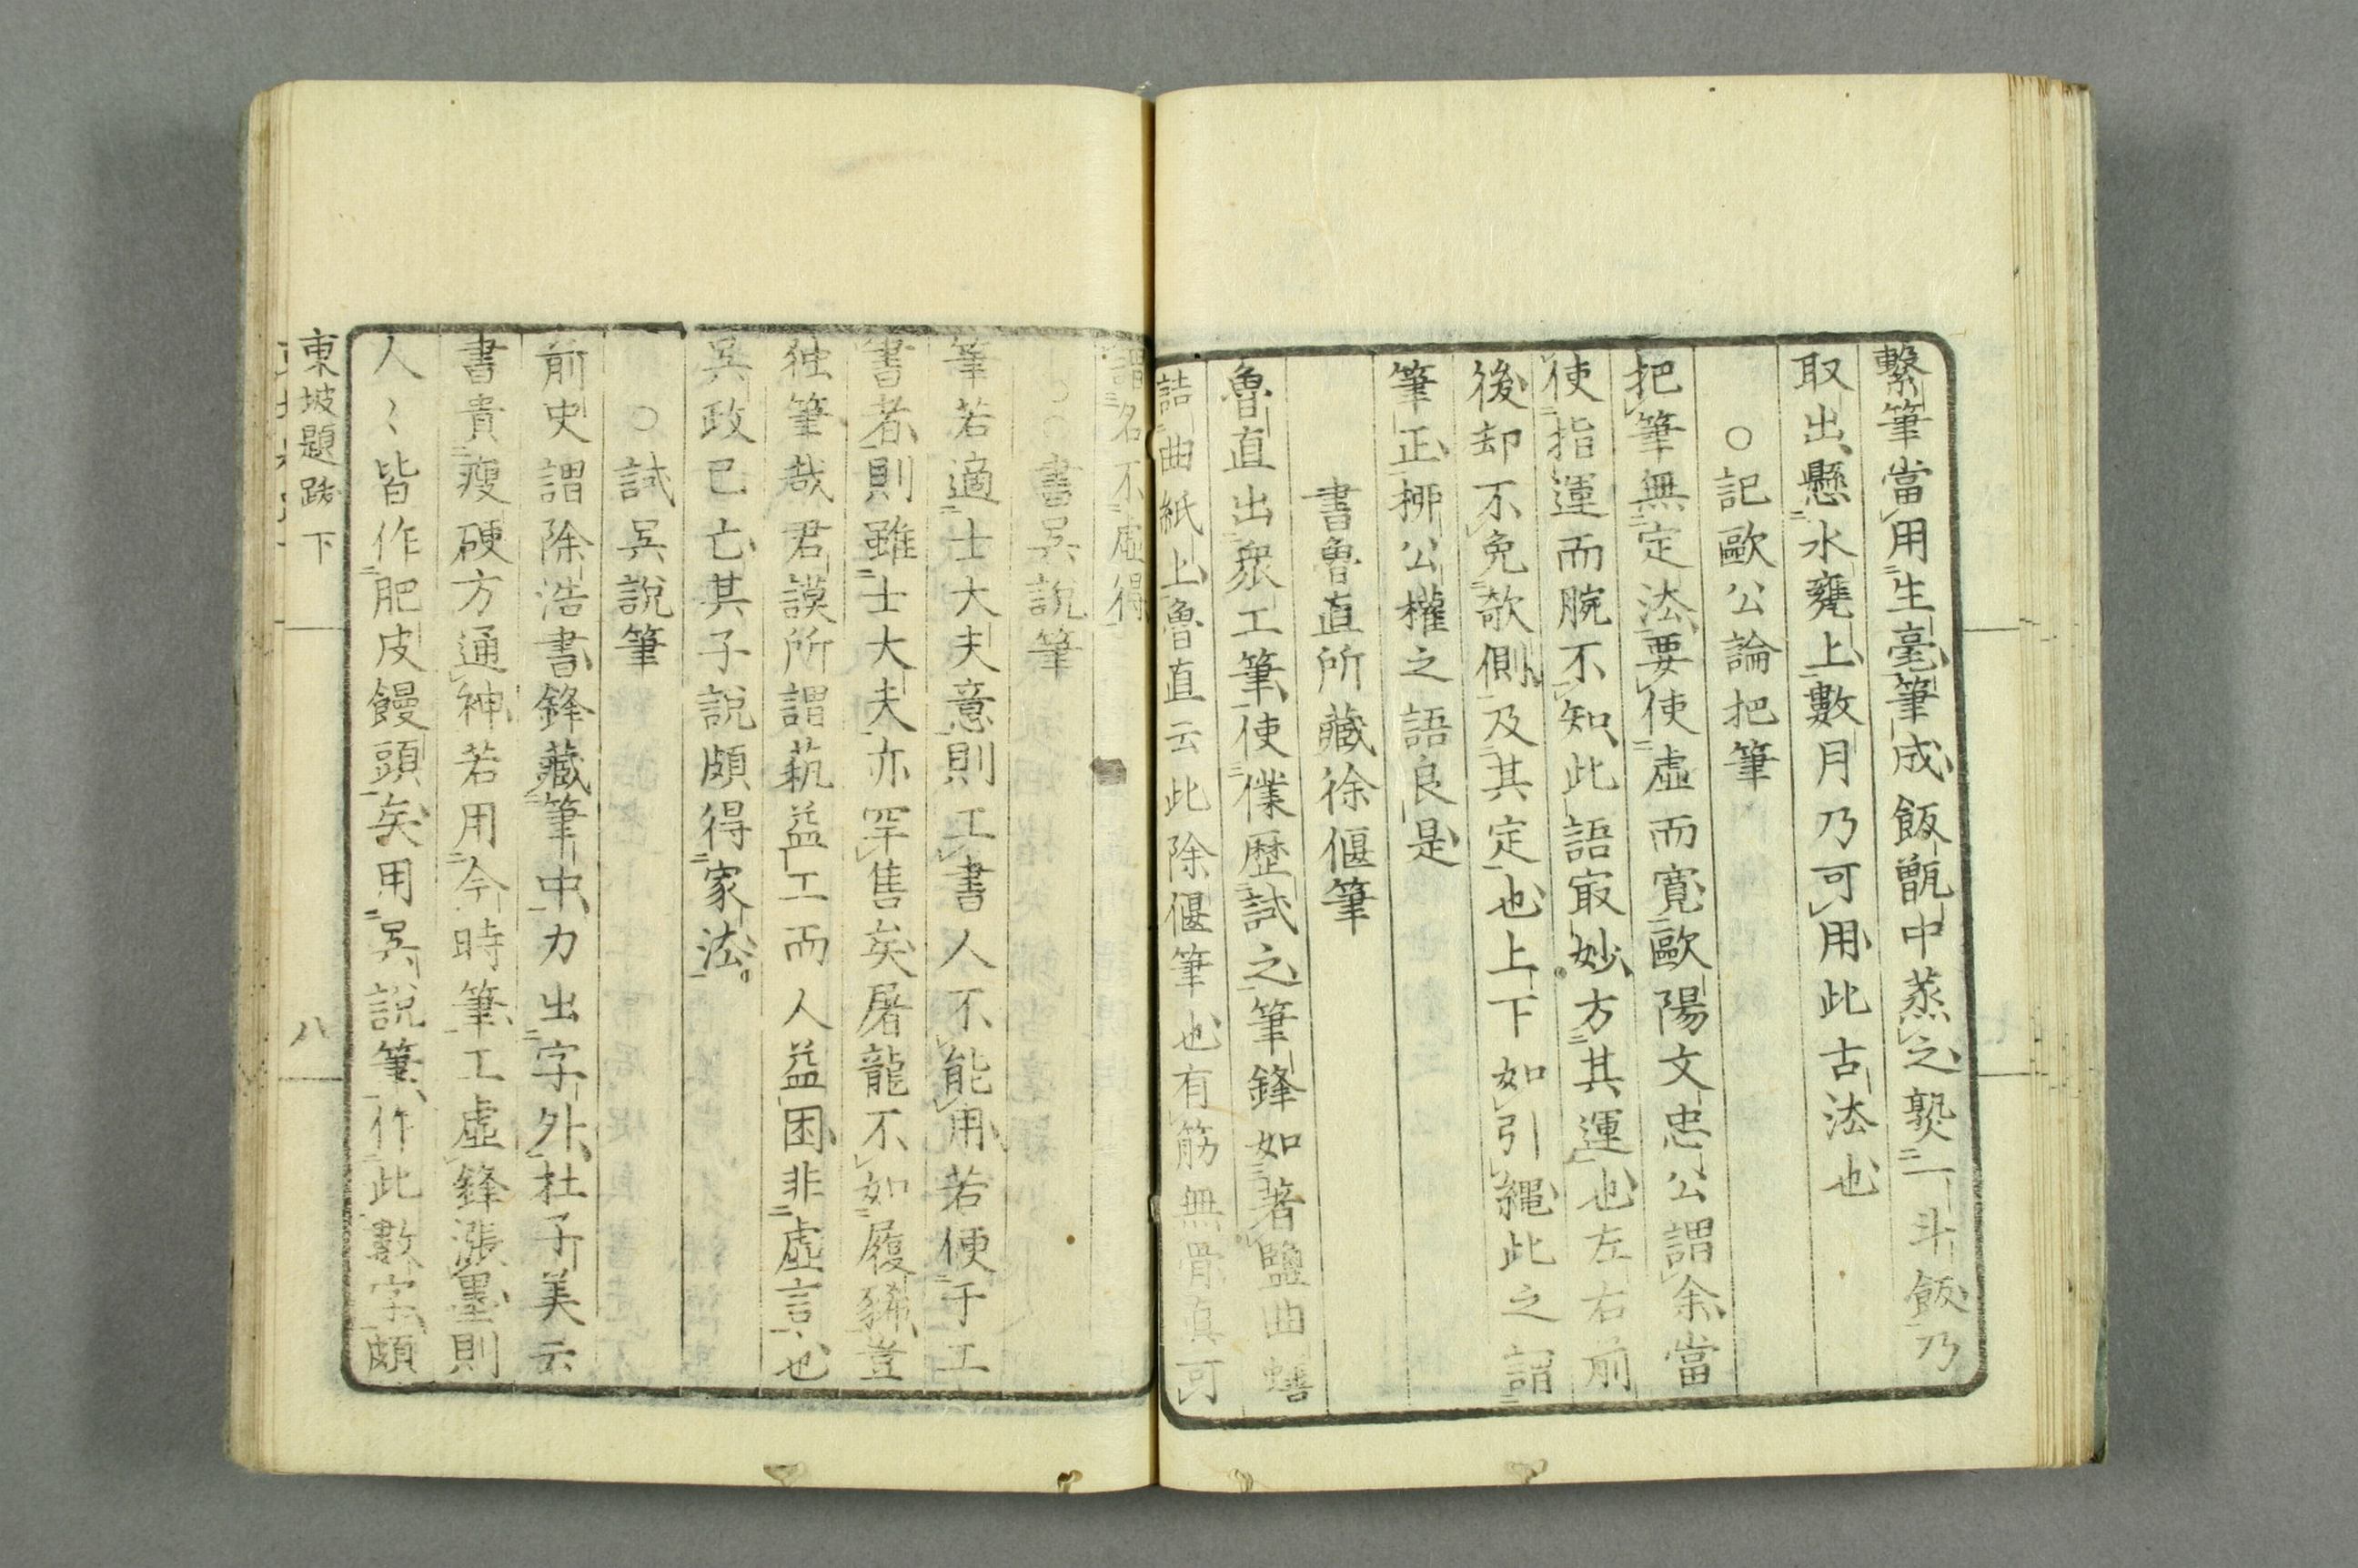 繫筆當用生毫筆成飯甑中蒸之熟一斗飯乃
取出懸水甕上數月乃可用此古法也
○記歐公論把筆
把筆無定法要使虛而寬歐陽文忠公謂余當
使指運而腕不知此語㝡妙方其運也左右前
後却不免欹側及其定也上下如引繩此之謂
筆正柳公權之語良是
書魯直所藏徐偃筆
魯直出衆工筆使僕歷試之筆鋒如著鹽曲蟮
詰曲紙上魯直云此除偃筆也有筋無骨真可
謂名不虛得
○書吳說筆
筆若適士大夫意則工書人不能用若便于工
書者則雖士大夫亦罕售矣屠龍不如履豨豈
独筆哉君謨所謂藝益工而人益困非虛言也
吳政已亡其子說頗得家法
○試吳說筆
前史謂除浩書鋒藏筆中力出字外杜子美云
書貴瘦硬方通神若用今時筆工虛鋒漲墨則
人〻皆作肥皮饅頭矣用吳說筆作此數字頗
東坡題跋下
八